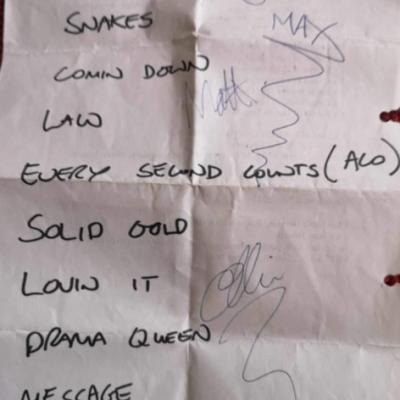 SNAKES
MAX
COMIN DOWN
Matt
LAW
EVERY SECOND COUNTS (ACO)
SOLID GOLD
LOVIN IT
Ollie
DRAMA QUEEN
MESSAGE